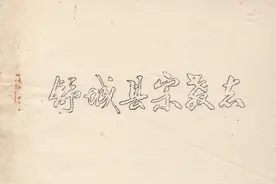 舒城县宗教志